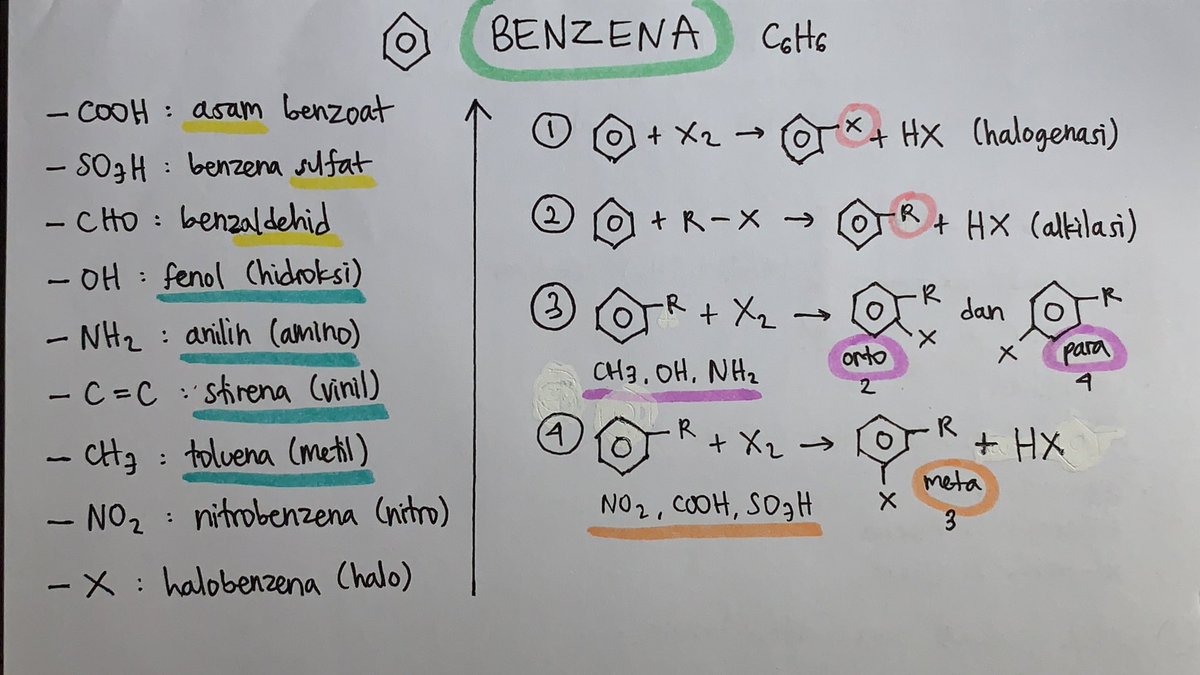 BENZENA C6H6
- COOH : asam benzoat
- SO3H : benzena sulfat
- CHO : benzaldehid
- OH : fenol (hidroksi)
- NH2 : anilin (amino)
- C=C : stirena (vinil)
- CH3 : toluena (metil)
- NO2 : nitrobenzena (nitro)
- X : halobenzena (halo)
① + X2 → X + HX (halogenasi)
② + R-X → R + HX (alkilasi)
③ R + X2 → R X dan R X
CH3, OH, NH2 orto para
2 4
④ R + X2 → R X + HX
NO2, COOH, SO3H meta
3